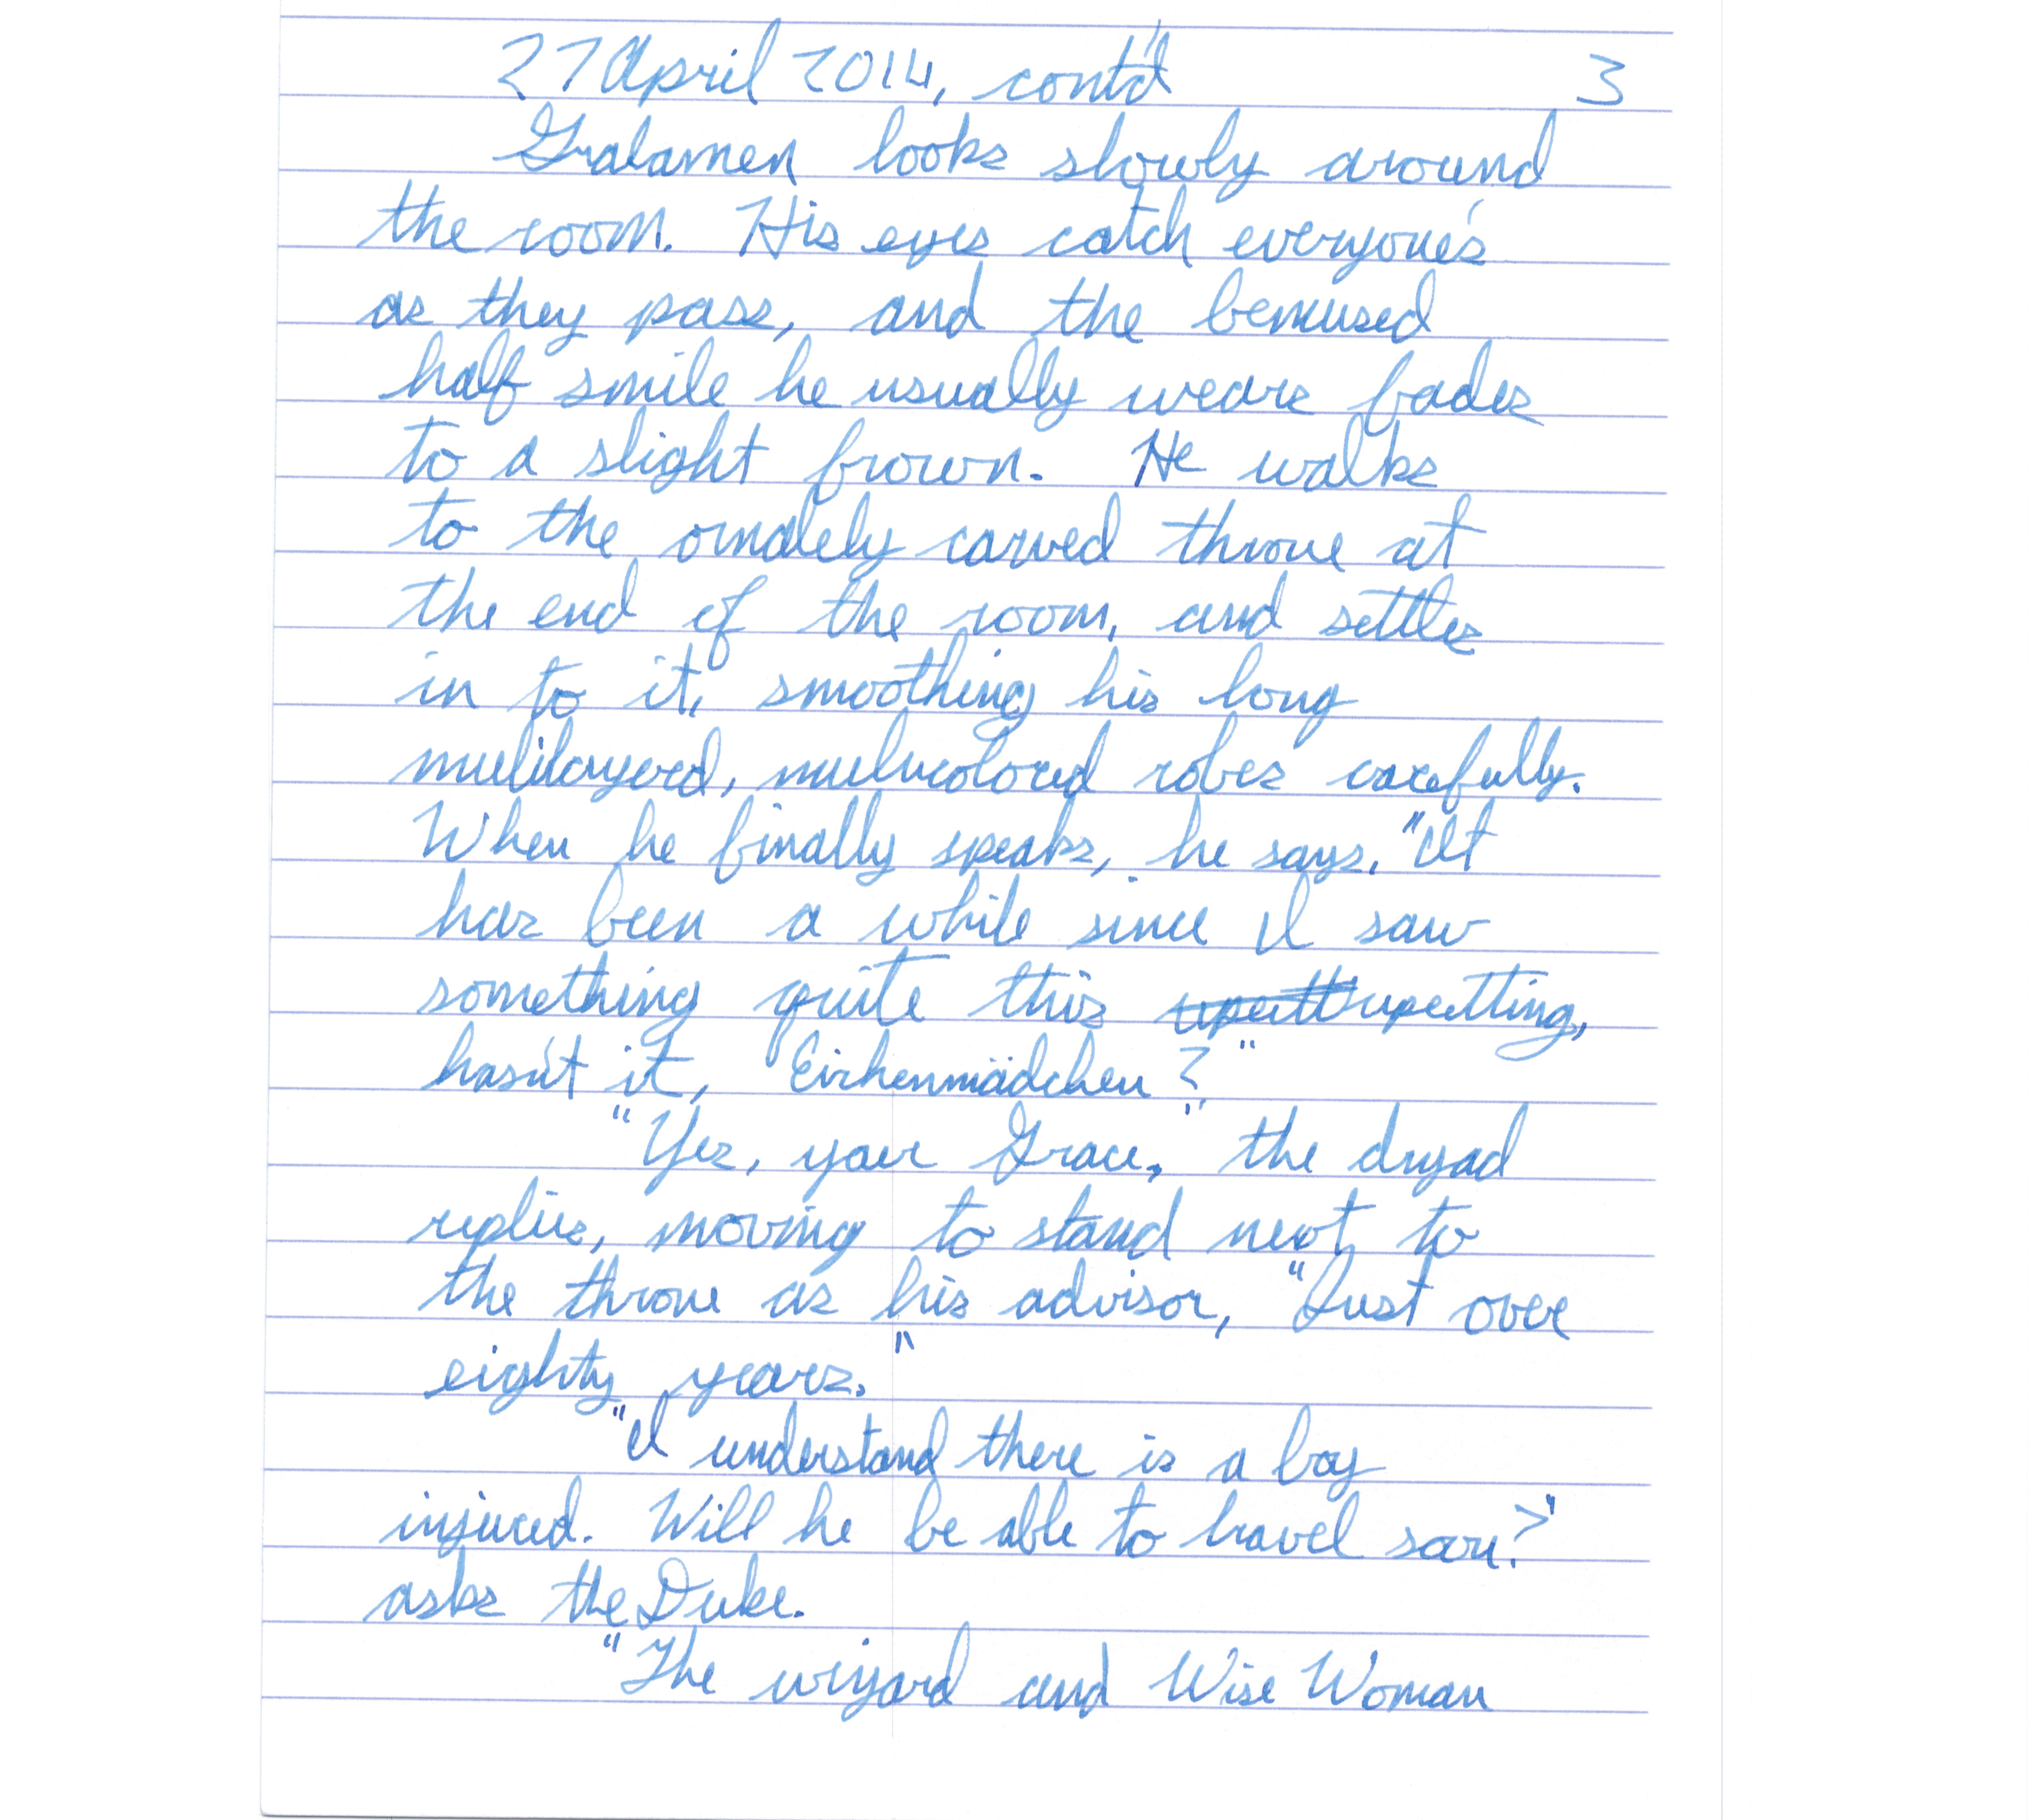 27 April 2014, cont'd 3
Galamen looks slowly around
the room. His eyes catch everyone's
as they pass, and the bemused
half smile he usually wears fades
to a slight frown. He walks
to the ornately carved throne at
the end of the room, and settles
in to it, smoothing his long
multilayered, multicolored robes carefully.
When he finally speaks, he says, "It
has been a while since I saw
something quite this upsetting,
hasn't it, Eichenmädchen?"
"Yes, your Grace," the dryad
replies, moving to stand next to
the throne as his advisor, "Just over
eighty years."
"I understand there is a boy
injured. Will he be able to travel soon?"
asks the Duke.
"The wizard and Wise Woman